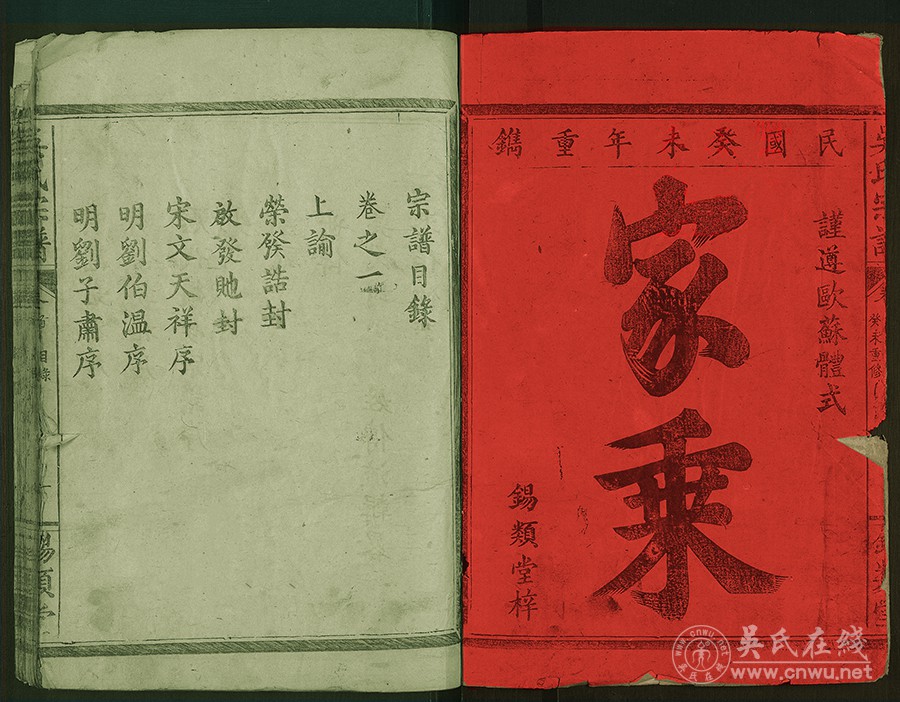 民國癸未年重鐫
謹遵歐蘇體式
家乘
錫類堂梓
癸未重修
宗譜目錄
卷之一
上諭
榮發誥封
啟發貤封
宋文天祥序
明劉伯温序
明劉子肅序
目錄
錫類堂
吳氏在线
www.cnwu.net